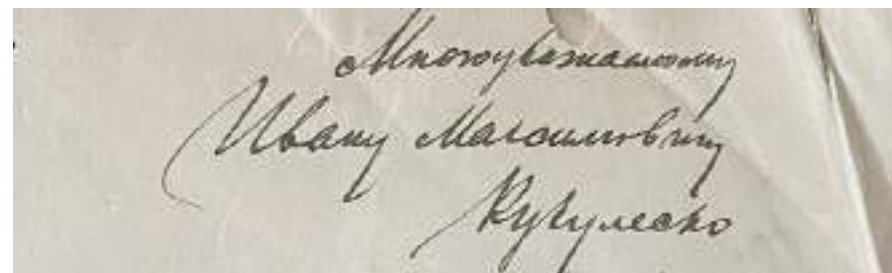 Многоуважаемому
Ивану Максимовичу
Кукулеско